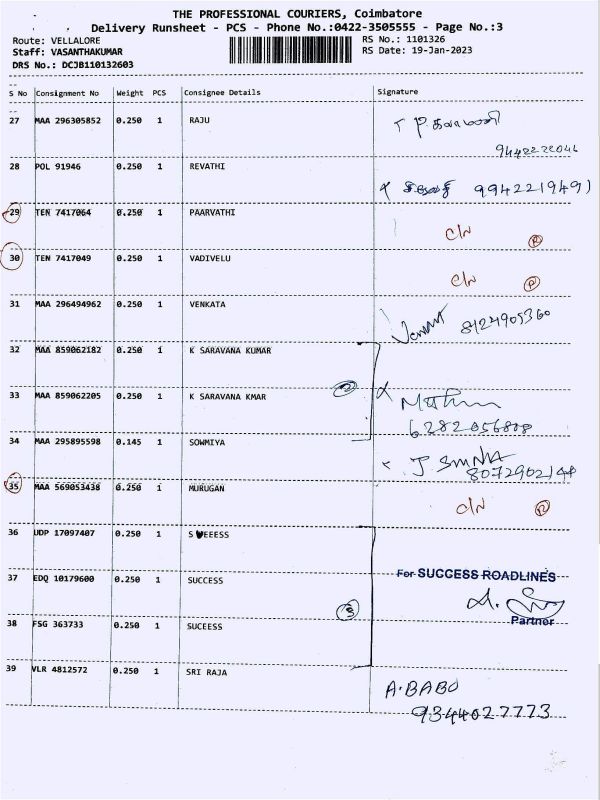 THE PROFESSIONAL COURIERS, Coimbatore
Delivery Runsheet - PCS - Phone No.:0422-3505555 - Page No.:3
Route: VELLALORE RS No.: 1101326
Staff: VASANTHAKUMAR RS Date: 19-Jan-2023
DRS No.: DCJB110132603
S No Consignment No Weight PCS Consignee Details Signature
27 MAA 296305852 0.250 1 RAJU
9442222046
28 POL 91946 0.250 1 REVATHI
9942219491
29 TEN 7417064 0.250 1 PAARVATHI C/N R
30 TEN 7417049 0.250 1 VADIVELU C/N R
31 MAA 296494962 0.250 1 VENKATA 8124905360
32 MAA 859062182 0.250 1 K SARAVANA KUMAR
2
33 MAA 859062205 0.250 1 K SARAVANA KMAR
6282056808
34 MAA 295895598 0.145 1 SOWMIYA
35 MAA 569053438 0.250 1 MURUGAN C/N R
36 UDP 17097407 0.250 1 S EEESS
37 EDQ 10179600 0.250 1 SUCCESS For SUCCESS ROADLINES
3
38 FSG 363733 0.250 1 SUCEESS Partner
39 VLR 4812572 0.250 1 SRI RAJA A.BABO
9344027773